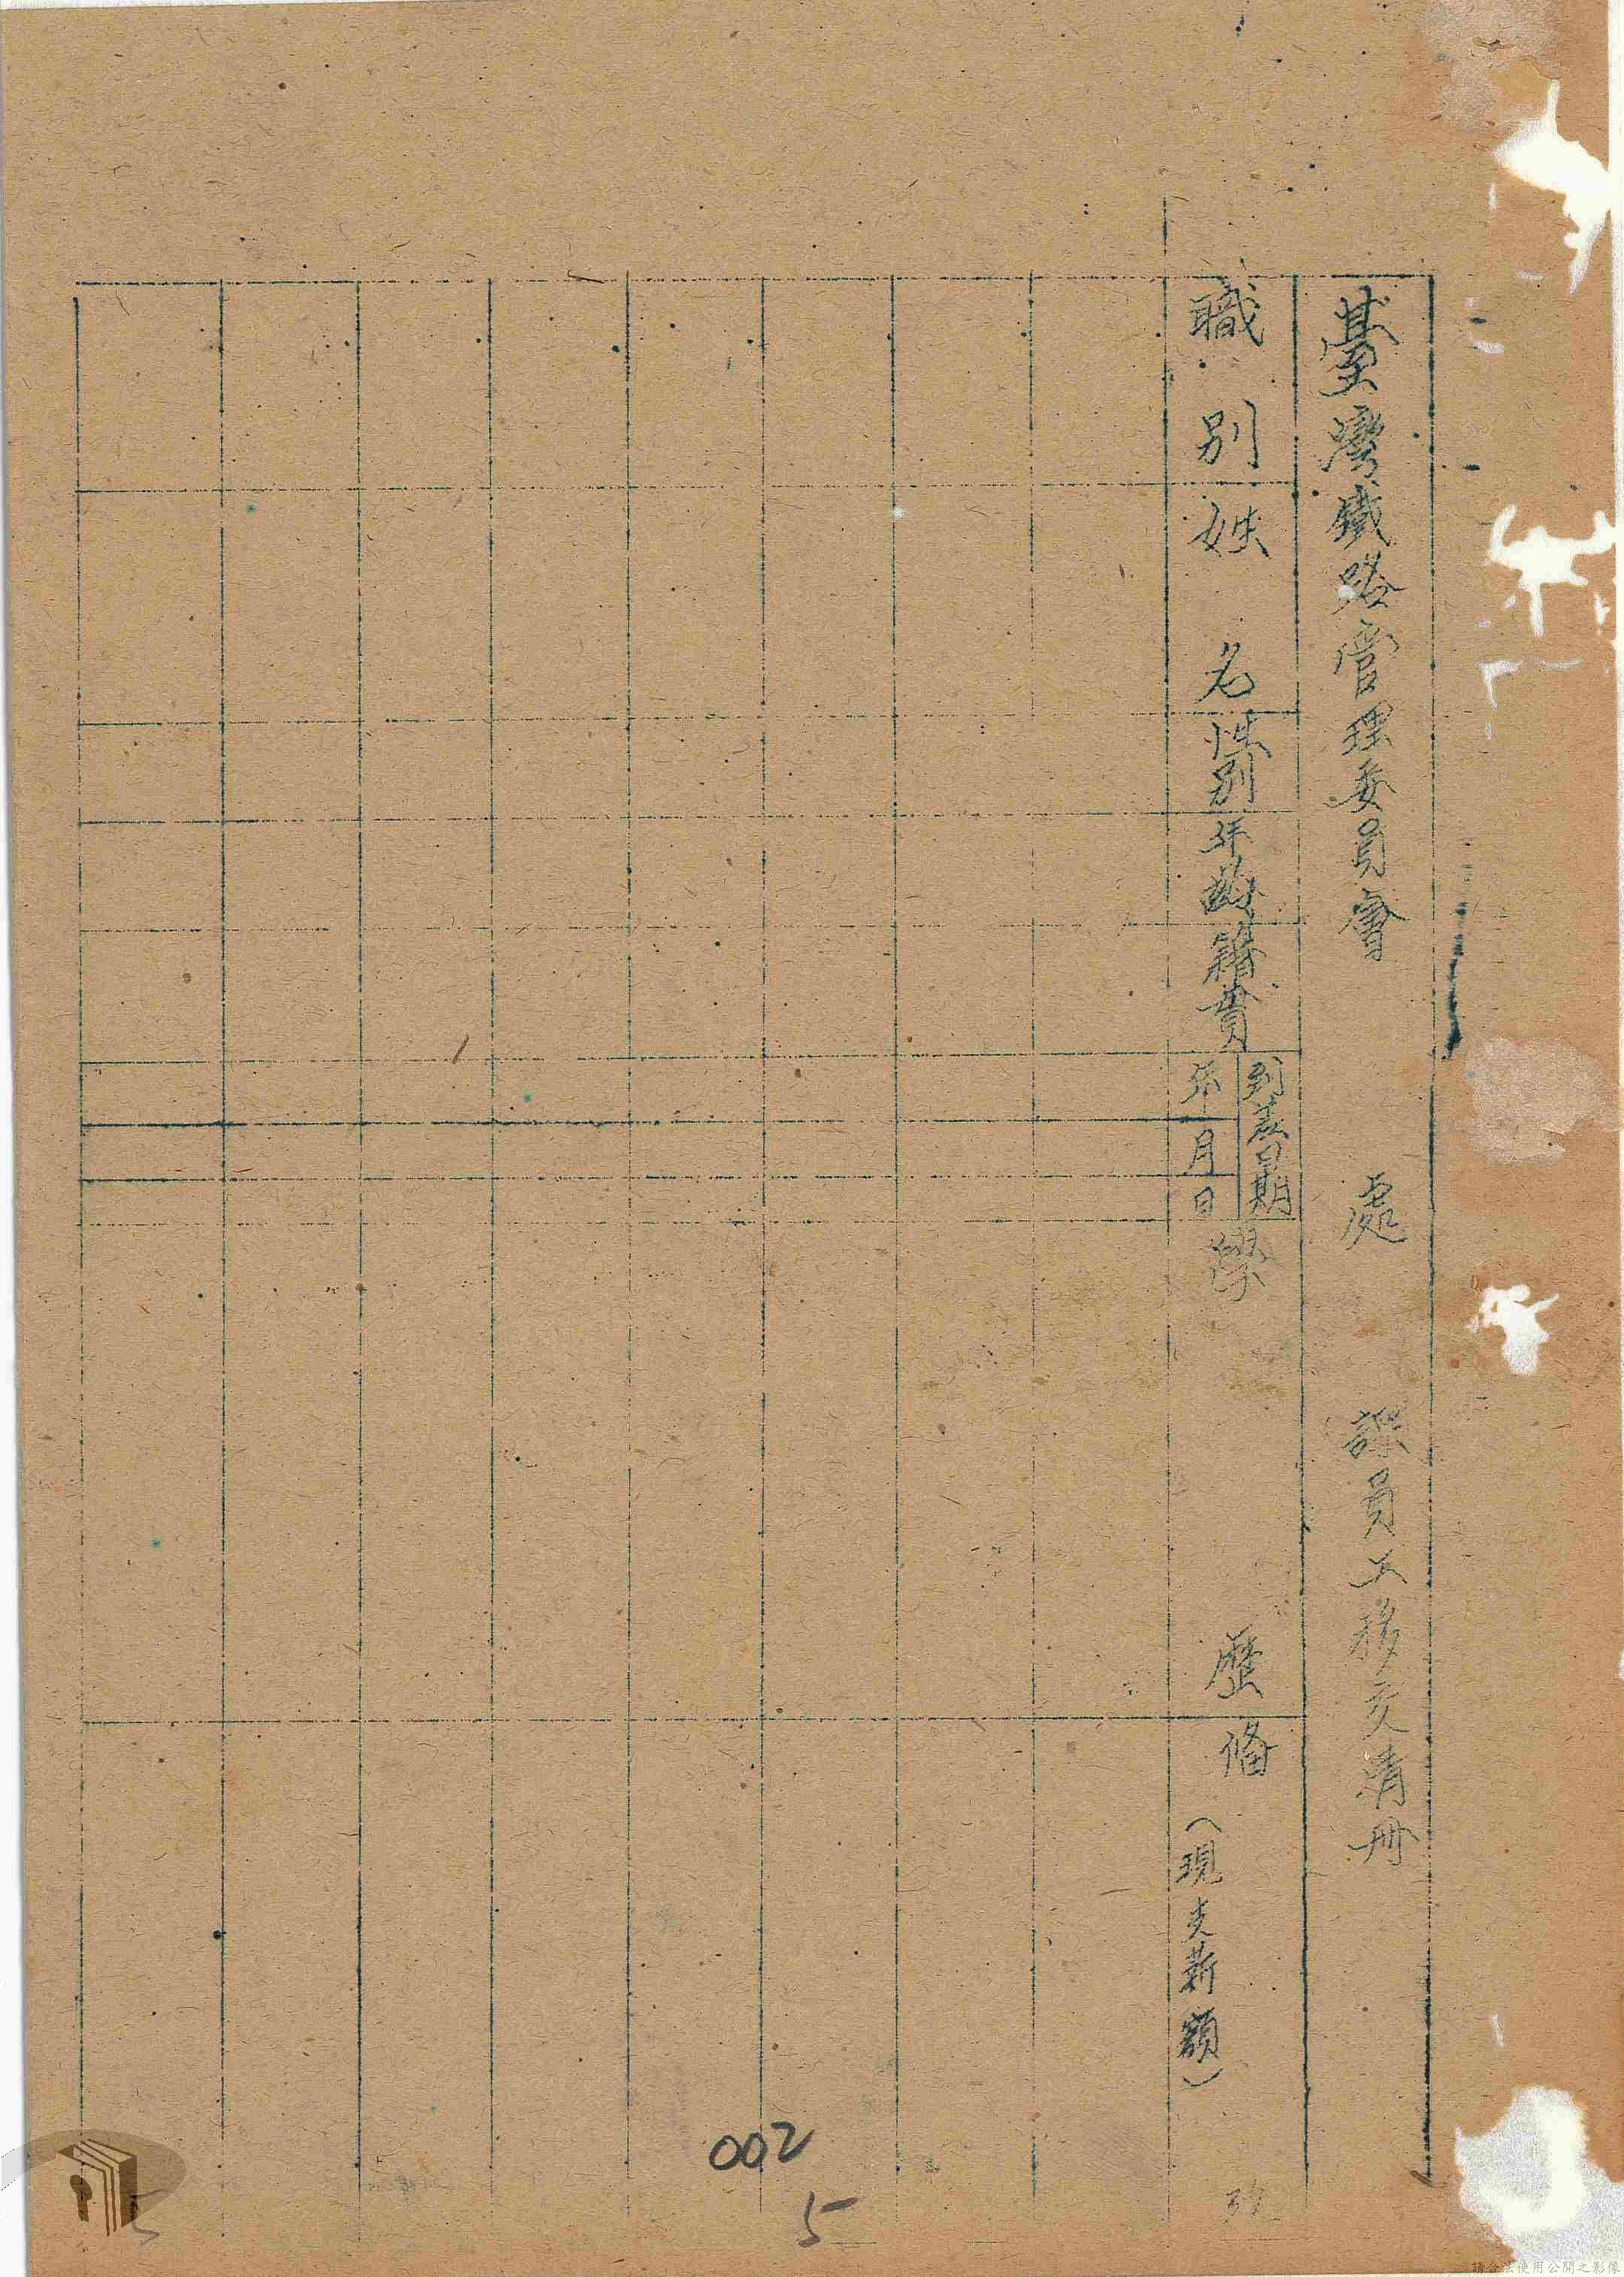 臺灣鐵路管理委員會　處　課員工移交清冊
職別
姓名
性別
年齡
籍貫
到差日期
年
月
日
學歷
備
（現支薪額）
002
5
5
請合法使用公開之影像